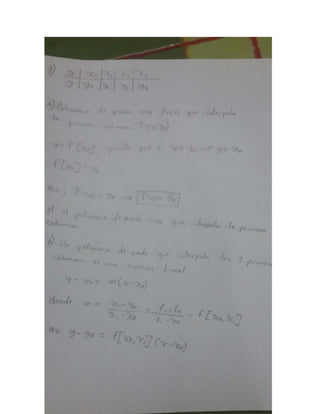 x | x₀ | x₁ | x₂ | x₃
y | y₀ | y₁ | y₂ | y₃
a) Polinomio de grado cero P₀(x) que interpola
la primera columna
y = f[x₀], puesto que si x = x₀ → y = y₀
f[x₀] = y₀
así P₀(x) = y₀ →
es el polinomio de grado cero que interpola la primera
columna
b) Un polinomio de grado que interpola las 2 primeras
columnas es una ecuación lineal
y - y₀ = m(x-x₀)
donde m = y₁-y₀ / x₁-x₀ = f₁-f₀ = f[x₀,x₁]
así y-y₀ = f[x₀,x₁](x-x₀)